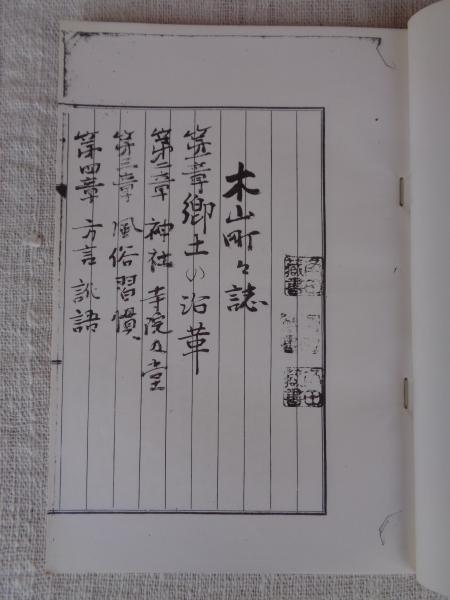 木山町々誌
第一章 郷土の沿革
第二章 神社 寺院及堂
第三章 風俗習慣
第四章 方言 訛語
蔵書
蔵書